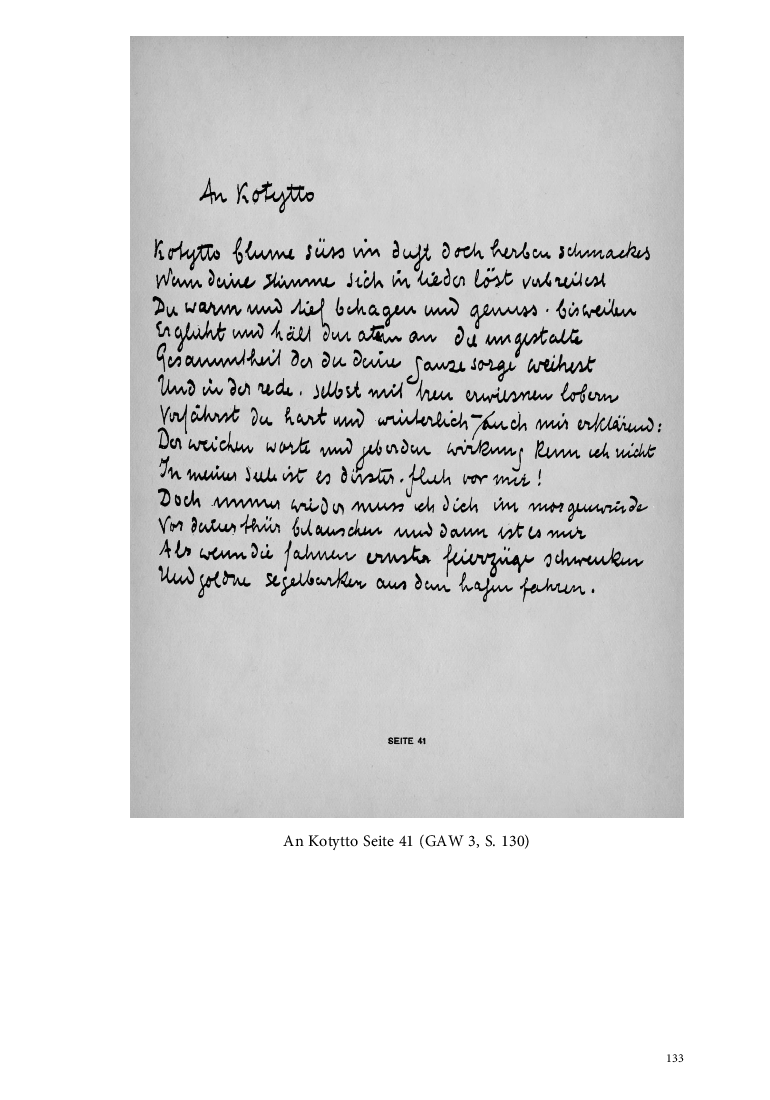 An Kotytto
Kotytto blume süss im duft doch herben schmackes
Wenn deine stimme sich in lieder löst verbreitest
Du warm und tief behagen und genuss · bisweilen
Erglüht und hält den atem an die ungestalte
Gesammtheit der du deine ganze sorge weihest
Und in der rede · selbst mit treu erwiesnen lobern
Verfährst du hart und winterlich – auch mir erklärend:
Der weichen worte und geberden wirkung kenn ich nicht
In meiner seele ist es düster · flieh vor mir!
Doch immer wieder muss ich dich im morgenwinde
Vor deiner thür belauschen und dann ist es mir
Als wenn die fahnen ernster feierzüge schwenken
Und goldne segelbarken aus dem hafen fahren.
SEITE 41
An Kotytto Seite 41 (GAW 3, S. 130)
133